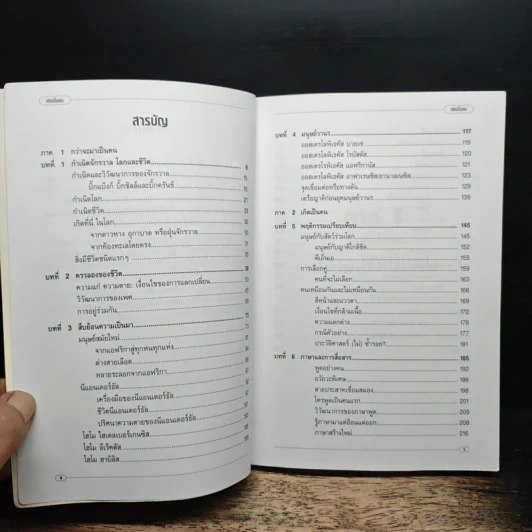 เกิดเป็นคน
สารบัญ
ภาค 1 กว่าจะมาเป็นคน
บทที่ 1 กำเนิดจักรวาล โลกและชีวิต 9
กำเนิดและวิวัฒนาการของจักรวาล
บิ๊กแบ็งก์ บิ๊กชิลล์และบิ๊กครันช์
กำเนิดโลก
กำเนิดชีวิต
เกิดที่นี่ ในโลก
จากดาวหาง อุกกาบาต หรือฝุ่นจักรวาล
จากท้องทะเลโดยตรง
สิ่งมีชีวิตชนิดแรกๆ
บทที่ 2 ครรลองของชีวิต
ความแก่ ความตาย: เงื่อนไขของการแลกเปลี่ยน
วิวัฒนาการของเพศ
การอยู่ร่วมกัน
บทที่ 3 สืบย้อนความเป็นมา
มนุษย์สมัยใหม่
จากแอฟริกาสู่ทุกหนทุกแห่ง
ต่างสายเลือด
หลายระลอกจากแอฟริกา
นีแอนเดอร์ธัล
เครื่องมือของนีแอนเดอร์ธัล
ชีวิตนีแอนเดอร์ธัล
ปริศนาความตายของนีแอนเดอร์ธัล
โฮโม ไฮเดลเบอร์เกนซิส
โฮโม อีเร็คตัส
โฮโม ฮาบิลิส
เกิดเป็นคน
บทที่ 4 มนุษย์วานร 117
ออสเตรโลพิเธคัส บวยเซ 119
ออสเตรโลพิเธคัส โรบัสตัส 120
ออสเตรโลพิเธคัส แอฟริกานัส 121
ออสเตรโลพิเธคัส อาฟาเรนซิส/อานาเมนซิส 123
จุดเชื่อมต่อหรือทางตัน 129
เครือญาติก่อนยุคมนุษย์วานร 135
ภาค 2 เกิดเป็นคน
บทที่ 5 พฤติกรรมเปรียบเทียบ 145
มนุษย์กับสัตว์ร่วมโลก 145
มนุษย์กับญาติใกล้ชิด 152
ดีเอ็นเอ 155
การเลือกคู่ 159
คนที่จะไม่เลือก 161
คนเหมือนกันและไม่เหมือนกัน 163
สีหน้าและแววตา 169
เงื่อนไขที่กล้ามเนื้อ 172
ความแตกต่าง 174
กรณีตัวอย่าง 177
ประวัติศาสตร์ (ไม่) ซ้ำรอย? 181
บทที่ 6 ภาษาและการสื่อสาร 185
พูดอย่างคน 192
อวัยวะพิเศษ 196
สายประสาทเชื่อมสมอง 198
ใครพูดเป็นคนแรก 201
วิวัฒนาการของภาษาพูด 205
รู้ภาษามาแต่อ้อนแต่ออก 208
ภาษาสร้างใหม่ 216
5